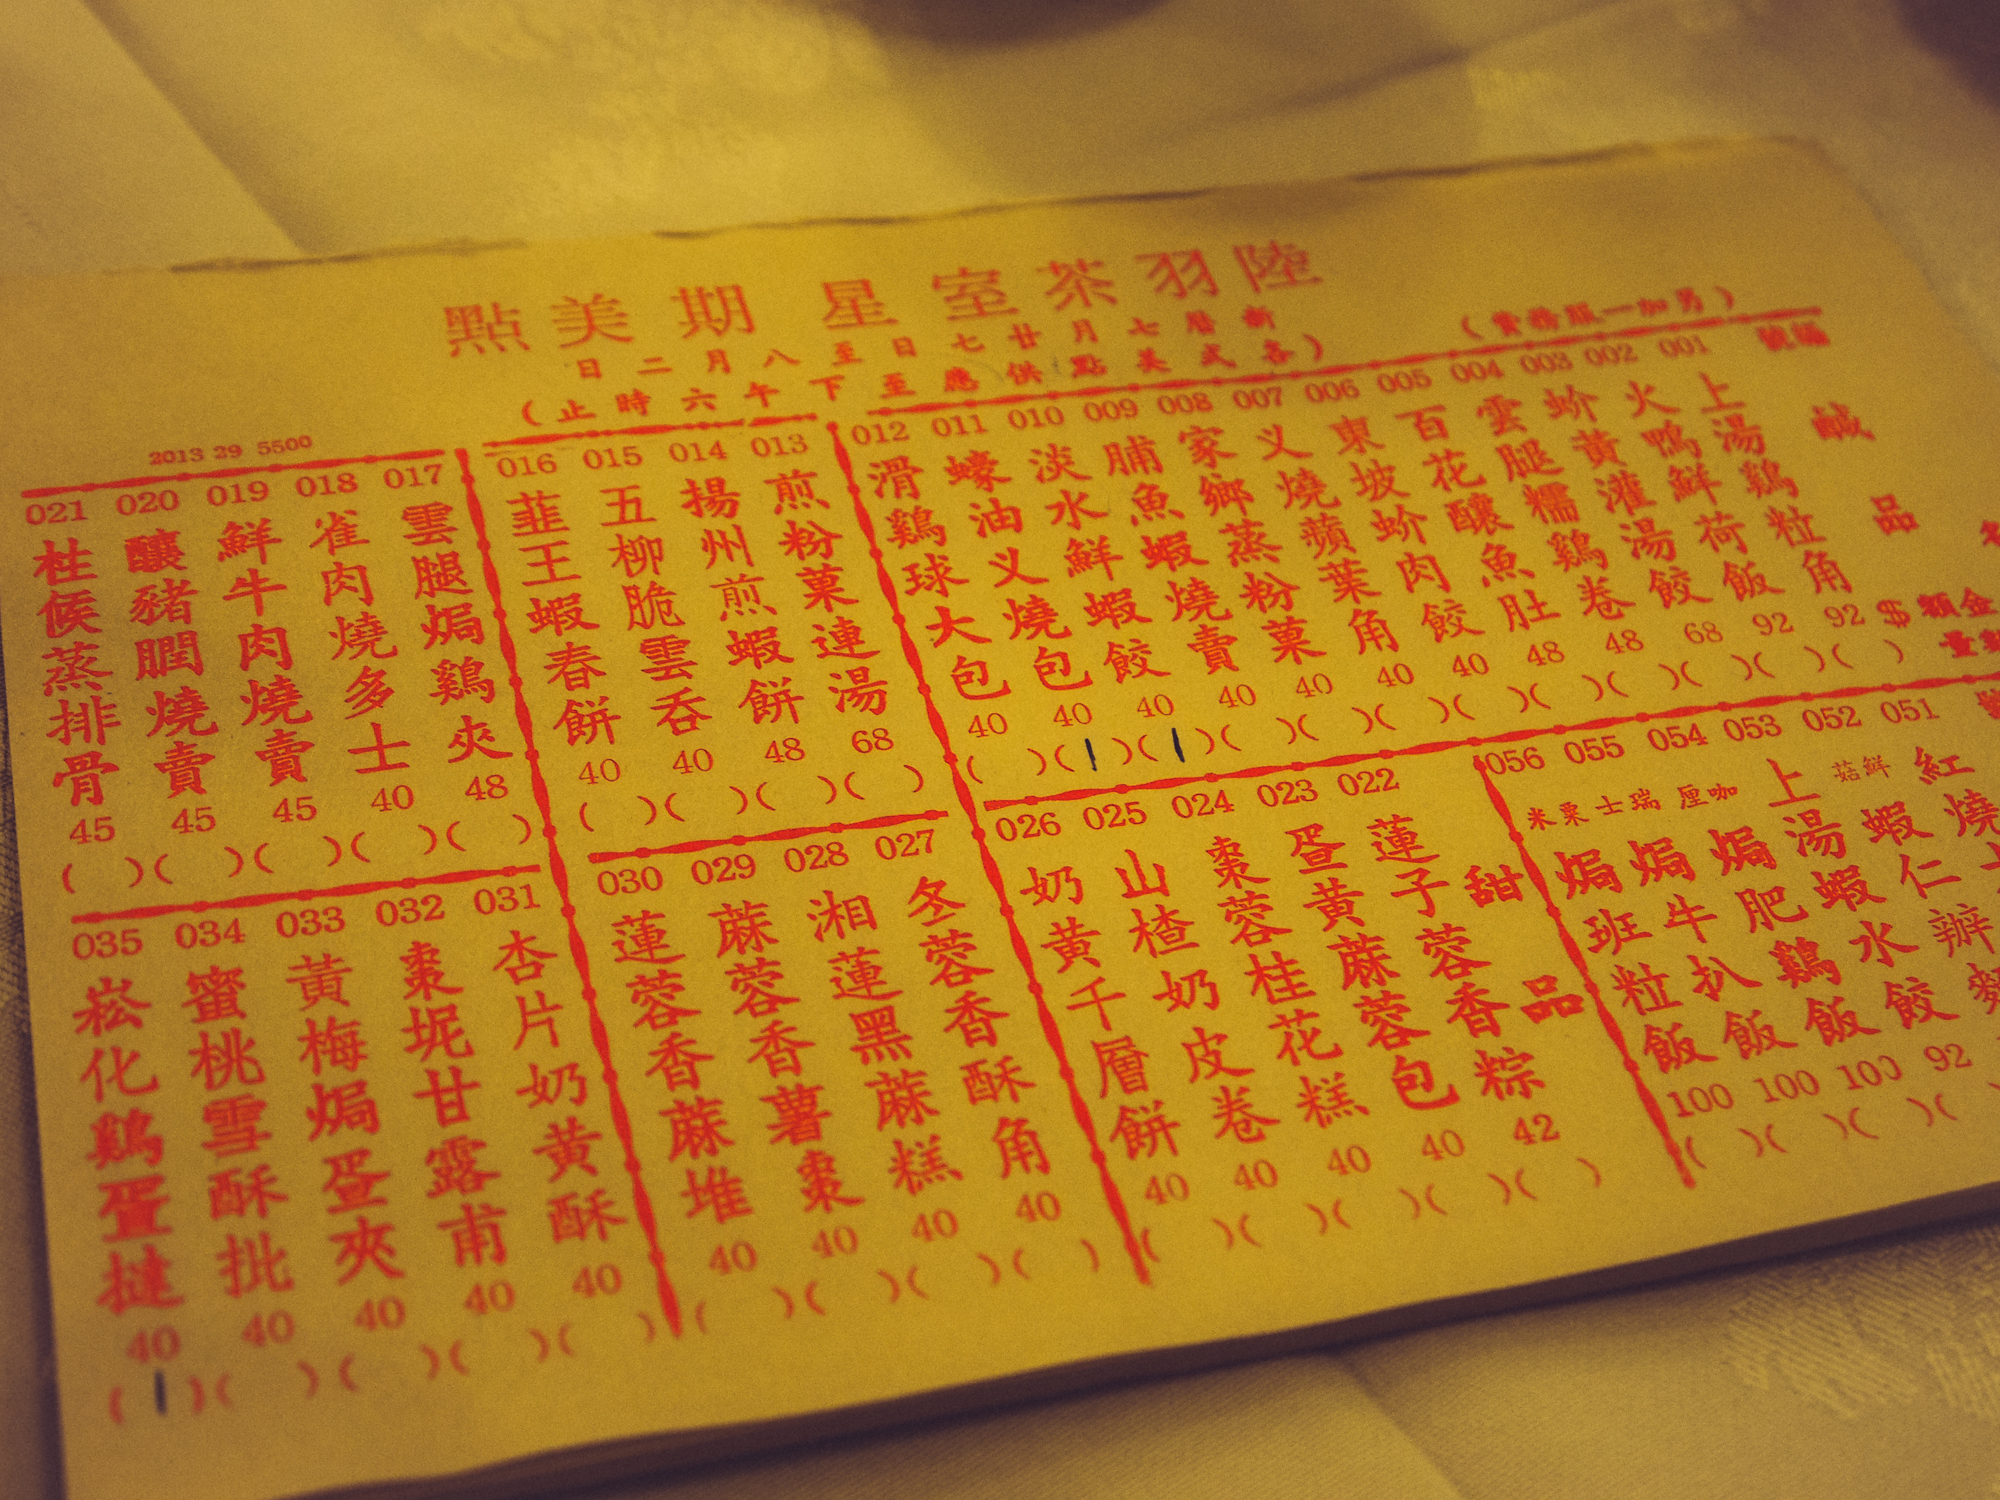 陸羽茶室星期美點
新曆七月廿七日至八月二日
(各式美點供應至下午六時止)
(另加一服務費)
編號
鹹品
金額$
001 上湯鷄粒角 92 ( )
002 火鴨鮮荷飯 92 ( )
003 蚧黃灌湯餃 68 ( )
004 雲腿糯鷄卷 48 ( )
005 百花釀魚肚 48 ( )
006 東坡蚧肉餃 40 ( )
007 义燒蘋葉角 40 ( )
008 家鄉蒸粉菓 40 ( )
009 脯魚蝦燒賣 40 ( )
010 淡水鮮蝦餃 40 (|)
011 蠔油义燒包 40 (|)
012 滑鷄球大包 40 ( )
013 煎粉菓連湯 68 ( )
014 揚州煎蝦餅 48 ( )
015 五柳脆雲吞 40 ( )
016 韮王蝦春餅 40 ( )
017 雲腿焗鷄夾 48 ( )
018 雀肉燒多士 40 ( )
019 鮮牛肉燒賣 45 ( )
020 釀豬膶燒賣 45 ( )
021 柱候蒸排骨 45 ( )
2013 29 5500
051 紅燒
052 鮮菇蝦仁辦麵
053 上湯蝦水餃 92 ( )
054 咖厘焗肥鷄飯 100 ( )
055 瑞士焗牛扒飯 100 ( )
056 粟米焗班粒飯 100 ( )
甜品
022 蓮子蓉香粽 42 ( )
023 蛋黃蔴蓉包 40 ( )
024 棗蓉桂花糕 40 ( )
025 山楂奶皮卷 40 ( )
026 奶黃千層餅 40 ( )
027 冬蓉香酥角 40 ( )
028 湘蓮黑蔴糕 40 ( )
029 蔴蓉香薯棗 40 ( )
030 蓮蓉香蔴堆 40 ( )
031 杏片奶黃酥 40 ( )
032 棗坭甘露甫 40 ( )
033 黃梅焗蛋夾 40 ( )
034 蜜桃雪酥批 40 ( )
035 崧化鷄蛋撻 40 (|)